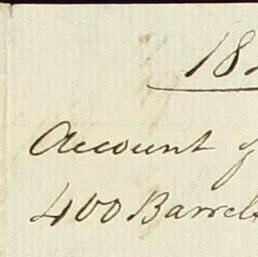 18
Account
400 Barrels